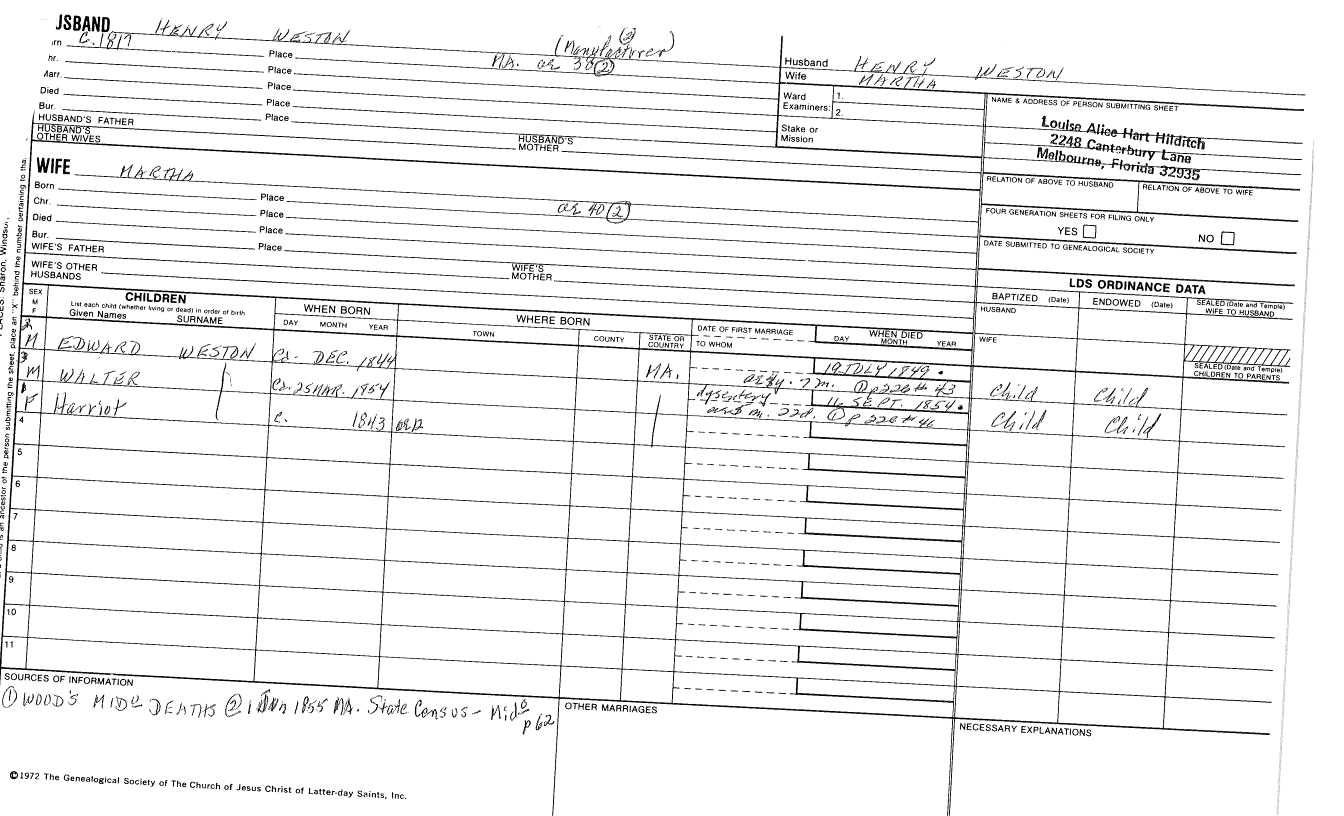 JSBAND HENRY WESTON (Manufacturer) ②
rn C. 1817 Place MA. ae 38 ②
hr. Place
Marr. Place
Died Place
Bur. Place
HUSBAND'S FATHER
HUSBAND'S MOTHER
HUSBAND'S OTHER WIVES
Husband HENRY WESTON
Wife MARTHA
Ward Examiners: 1.
2.
Stake or Mission
NAME & ADDRESS OF PERSON SUBMITTING SHEET
Louise Alice Hart Hilditch
2248 Canterbury Lane
Melbourne, Florida 32935
RELATION OF ABOVE TO HUSBAND RELATION OF ABOVE TO WIFE
FOUR GENERATION SHEETS FOR FILING ONLY
YES NO
DATE SUBMITTED TO GENEALOGICAL SOCIETY
WIFE MARTHA
Born Place ae 40 ②
Chr. Place
Died Place
Bur. Place
WIFE'S FATHER
WIFE'S MOTHER
WIFE'S OTHER HUSBANDS
LDS ORDINANCE DATA
SEX M F
CHILDREN
List each child (whether living or dead) in order of birth
Given Names SURNAME
WHEN BORN
DAY MONTH YEAR
WHERE BORN
TOWN COUNTY STATE OR COUNTRY
DATE OF FIRST MARRIAGE
TO WHOM
WHEN DIED
DAY MONTH YEAR
BAPTIZED (Date) ENDOWED (Date) SEALED (Date and Temple) WIFE TO HUSBAND
HUSBAND
WIFE
SEALED (Date and Temple) CHILDREN TO PARENTS
2 M EDWARD WESTON Ca. DEC. 1844 MA. 19 JULY 1849.
ae 4y. 7m. ① p 226 # 43 Child Child
3 M WALTER Ca. 25 MAR. 1854 dysentery 16 SEPT. 1854.
ae 5 m. 22d. ① p 226 # 46 Child Child
1 F Harriot C. 1843 ae 12
4
5
6
7
8
9
10
11
SOURCES OF INFORMATION
① WOOD'S MIDo DEATHS ② 1 Jun 1855 MA. State Census - Mido
p 62
OTHER MARRIAGES
NECESSARY EXPLANATIONS
©1972 The Genealogical Society of The Church of Jesus Christ of Latter-day Saints, Inc.
is an ancestor of the person submitting the sheet, place an "X" behind the number pertaining to tha
Sharon, Windsor,